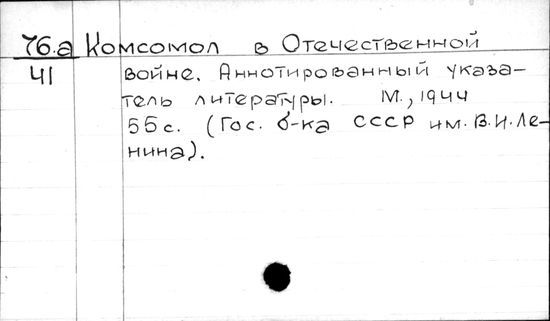 76.а Комсомол в Отечественной
41 войне. Аннотированный указа-
тель литературы. М., 1944
55с. (Гос. б-ка СССР им. В.И. Ле-
нина).